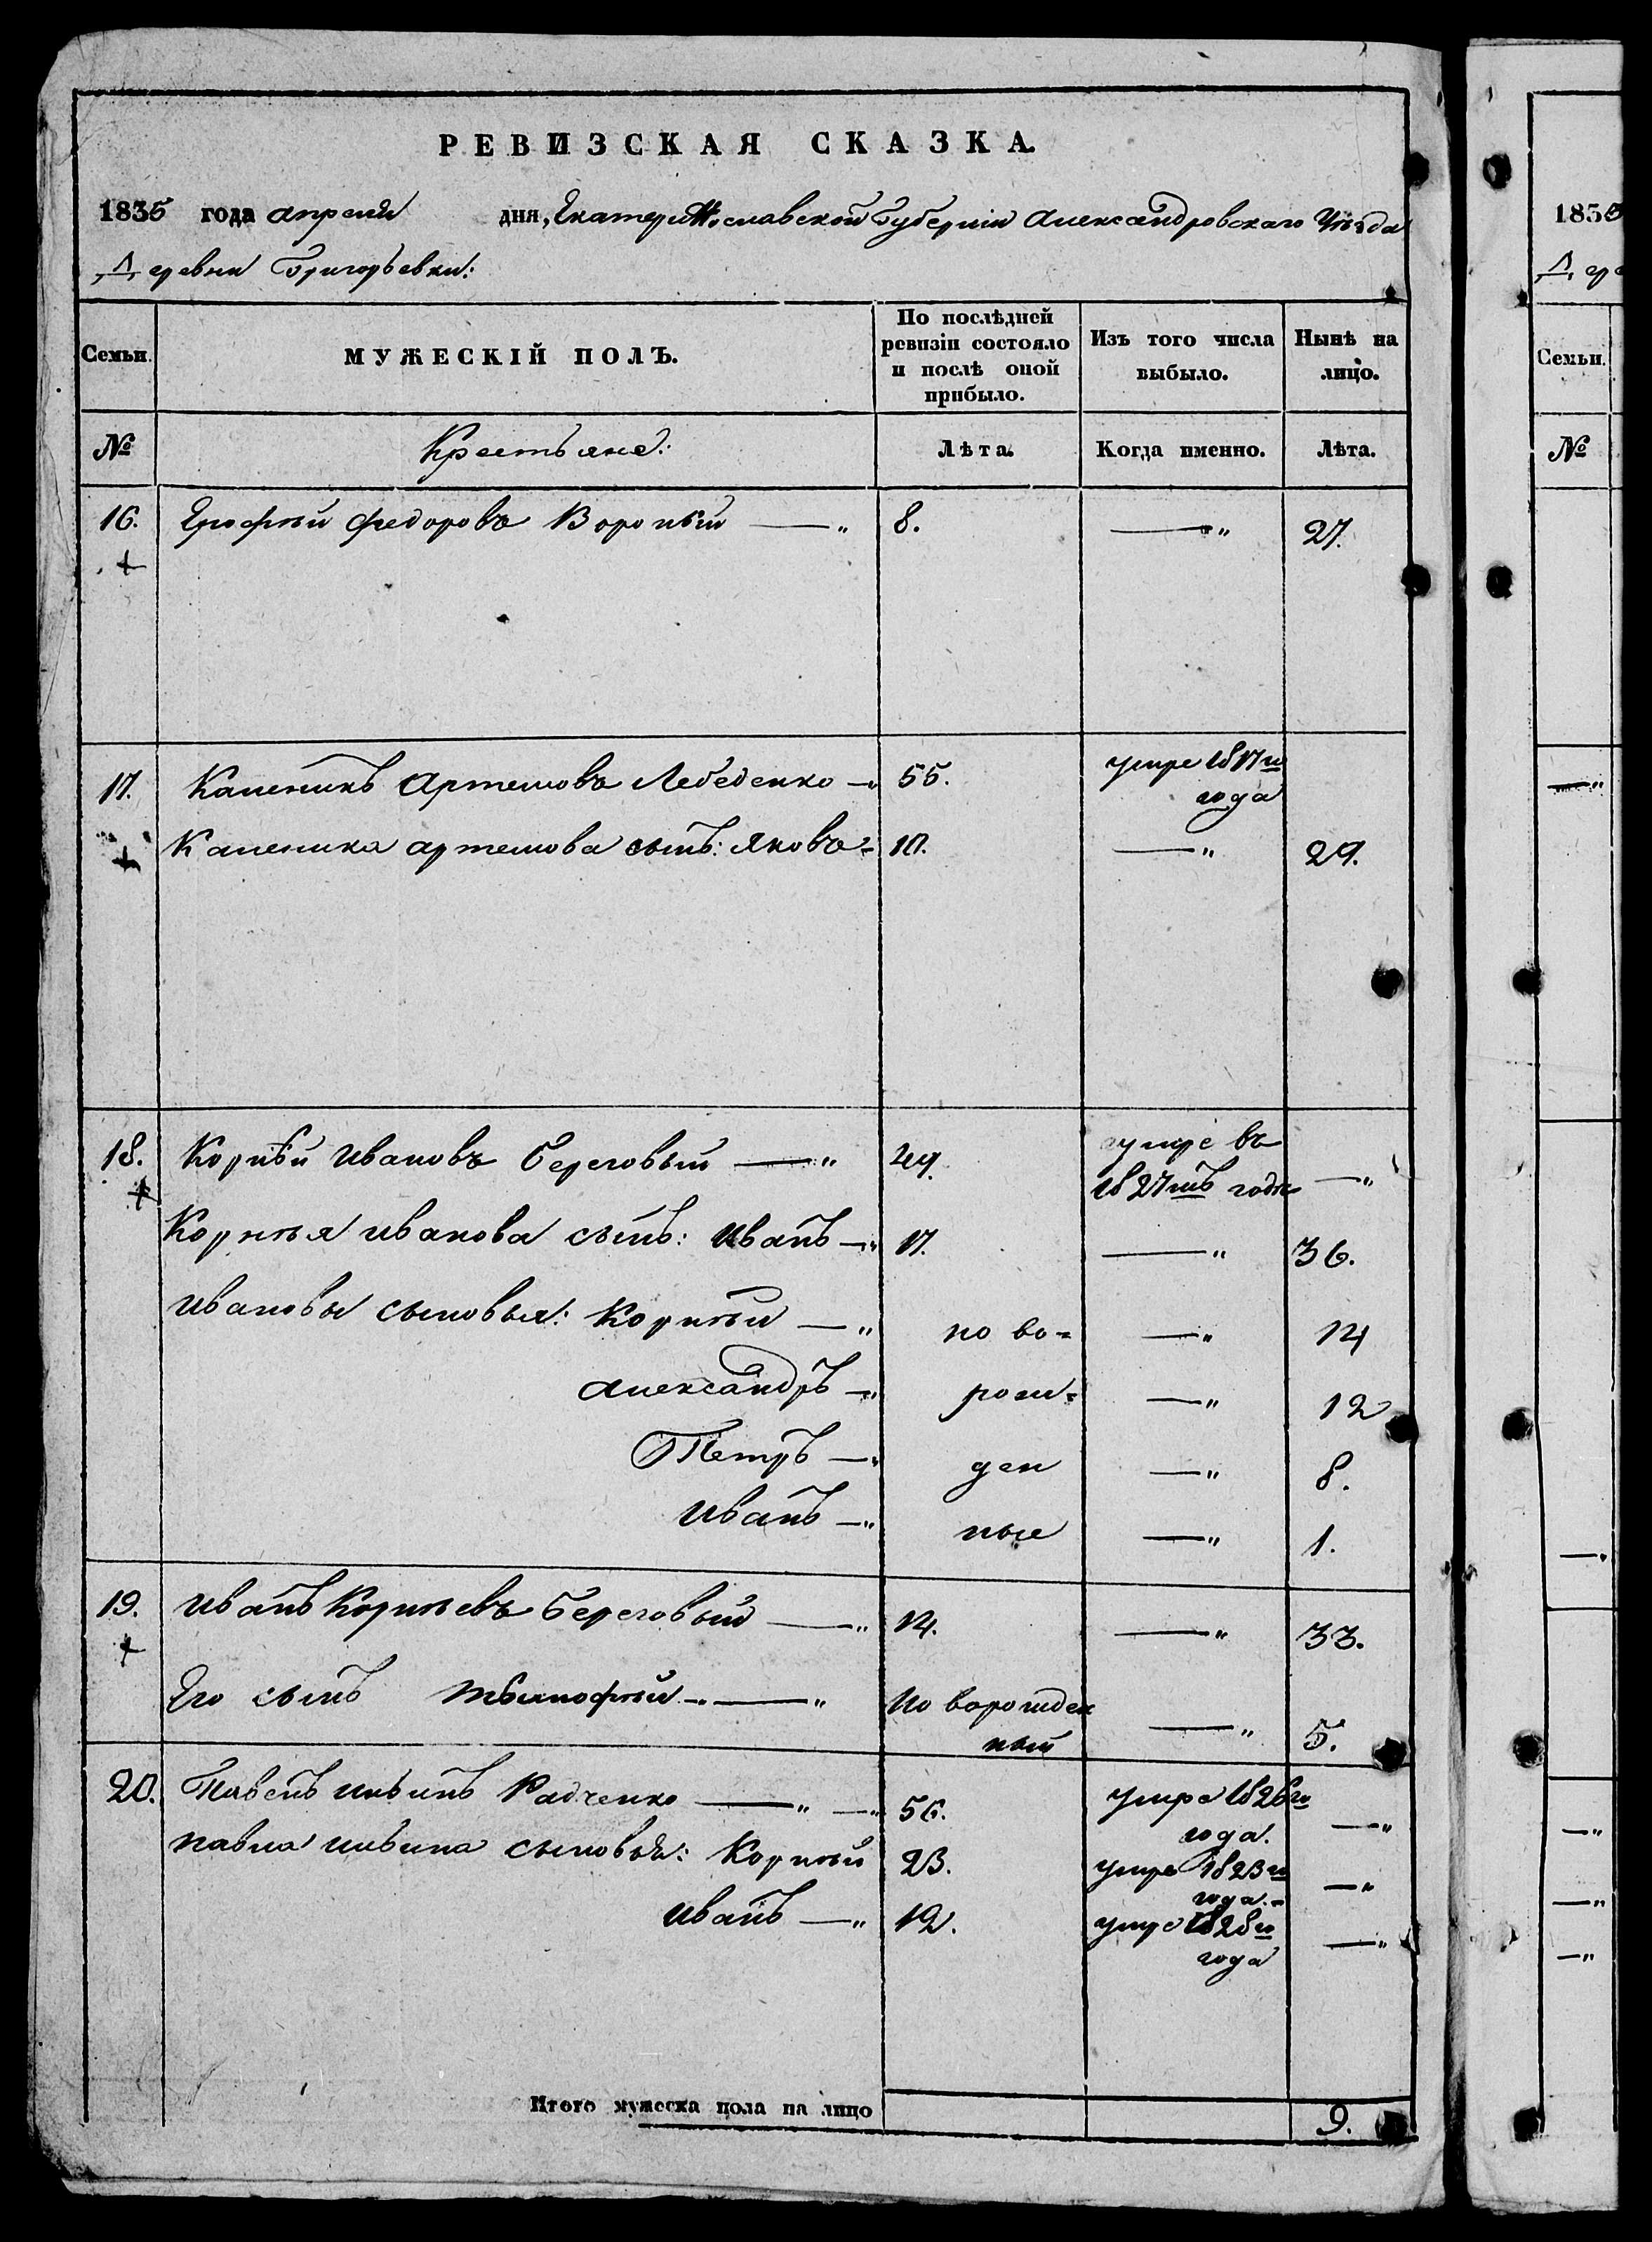 РЕВИЗСКАЯ СКАЗКА.
1835 года апреля дня, Екатеринославской Губерніи Александровскаго Уѣзда
Деревни Григорьевки:
Семьи. МУЖЕСКІЙ ПОЛЪ. По послѣдней ревизіи состояло и послѣ оной прибыло. Изъ того числа выбыло. Нынѣ на лицо.
№ Крестьяне: Лѣта. Когда именно. Лѣта.
16. Ерофѣй Федоровъ Вороный —„ 8. —„ 27.
17. Каленикъ Артемовъ Лебеденко —„ 55. умре 1817го
года
Каленика артемова сынъ: Яковъ 10. —„ 29.
18. Корнѣй Ивановъ Береговый —„ 49. умре въ
1827мъ годѣ —„
Корнѣя иванова сынъ: Иванъ —„ 17. —„ 36.
Ивановы сыновья: Корнѣй —„ но во= —„ 14
Александръ —„ рож= —„ 12
Петръ —„ ден —„ 8.
Иванъ —„ ные —„ 1.
19. Иванъ Корнѣевъ Береговый —„ 14. —„ 33.
Его сынъ Тимофѣй —„ Но ворожден
ный —„ 5.
20. Павелъ Ильинъ Радченко —„ —„ 56. умре 1826го
года. —„
павла ильина сыновья: Корнѣй 23. умре 1823го
года.= —„
Иванъ —„ 12. умре 1828го
года —„
Итого мужеска пола на лицо 9.
1835
Дере
Семьи.
№